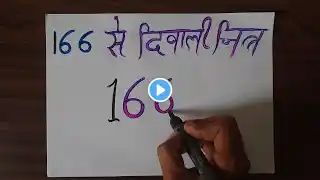 166 से दिवाली चित्र
166